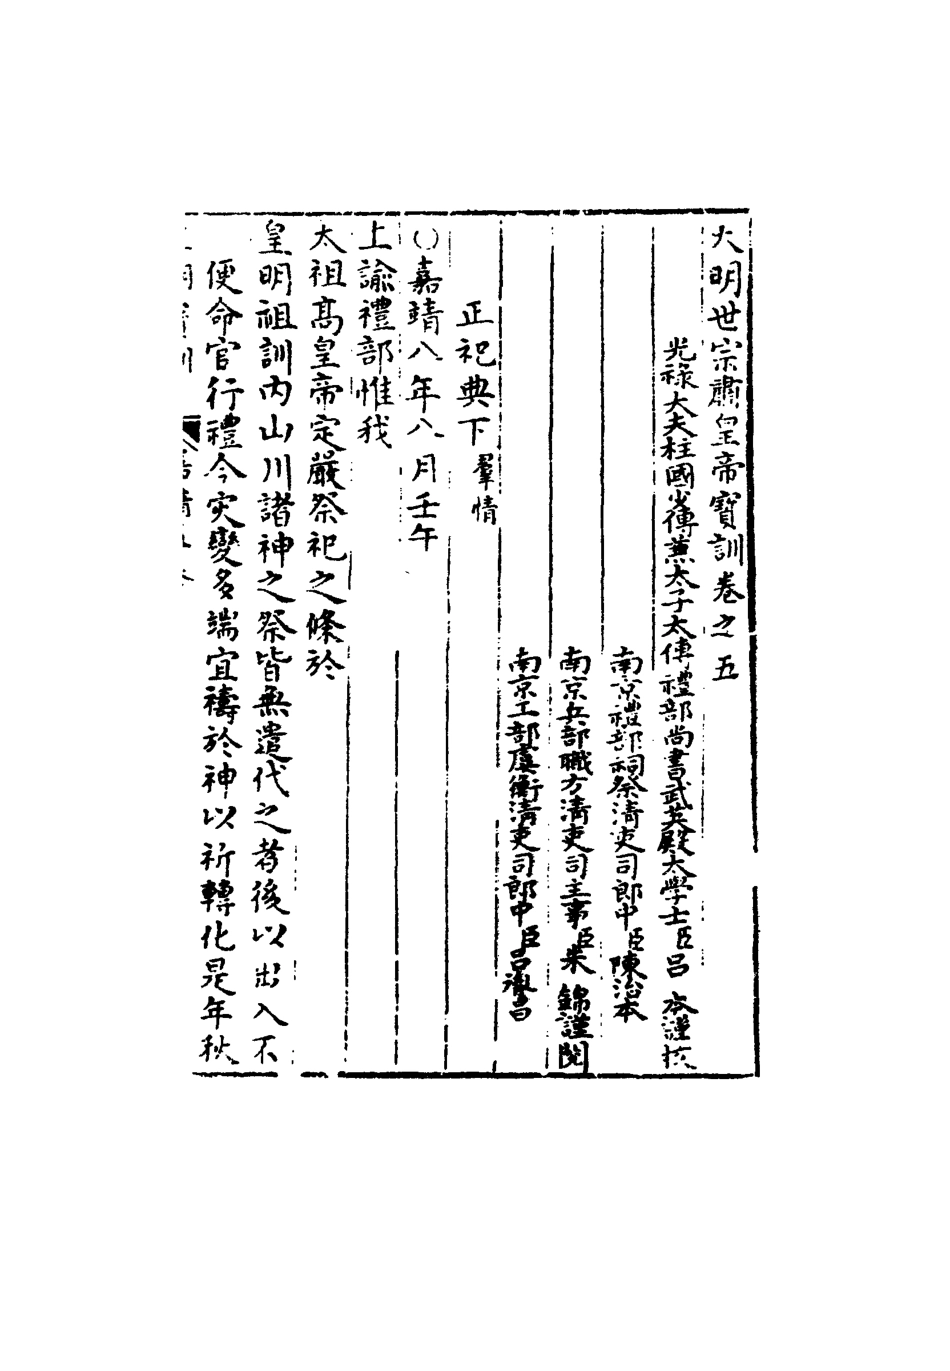 大明世宗肅皇帝寶訓卷之五
光祿大夫柱國少傅兼太子太傅禮部尚書武英殿大學士臣呂本謹校
南京禮部祠祭清吏司郎中臣陳治本
南京兵部職方清吏司主事臣朱錦謹閱
南京工部虞衡清吏司郎中臣呂胤昌
正祀典下 羣情
○嘉靖八年八月壬午
上諭禮部惟我
太祖高皇帝定嚴祭祀之條於
皇明祖訓内山川諸神之祭皆無遣代之者後以出入不
便命官行禮今灾變多端宜禱於神以祈轉化是年秋